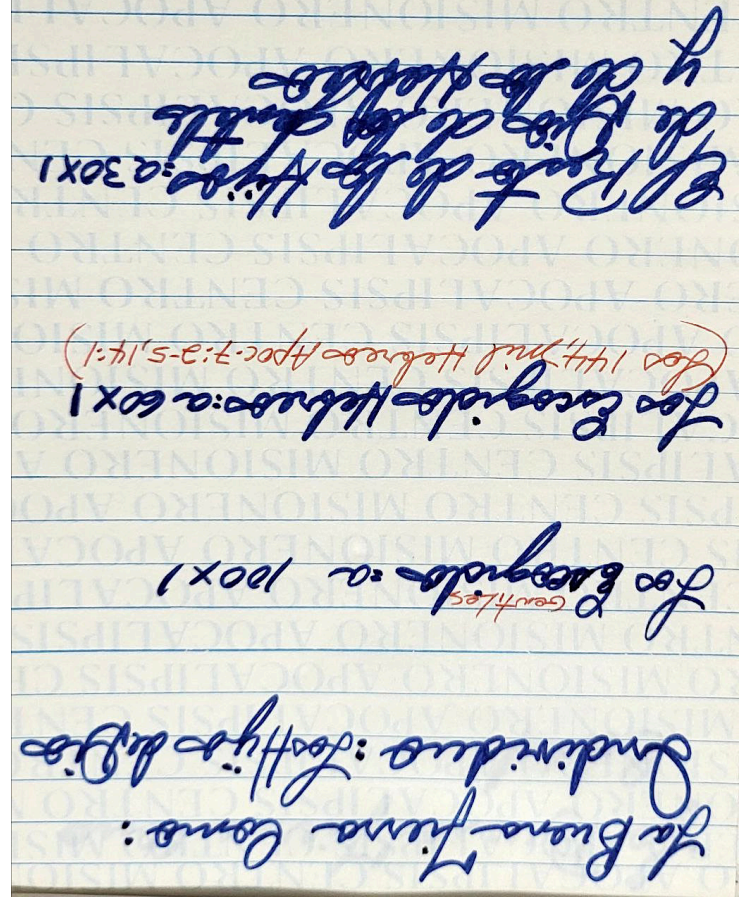 La Buena Tierra Como:
Individuo: Los Hijos de Dios
Gentiles
Los Escogidos = a 100x1
Los Escogidos Hebreos: a 60x1
(Los 144, mil Hebreos Apoc. 7:2-5, 14:1)
El Resto de los Hijos = a 30x1
de Dios de los gentiles
y de los Hebreos
CENTRO MISIONERO APOCALIPSIS